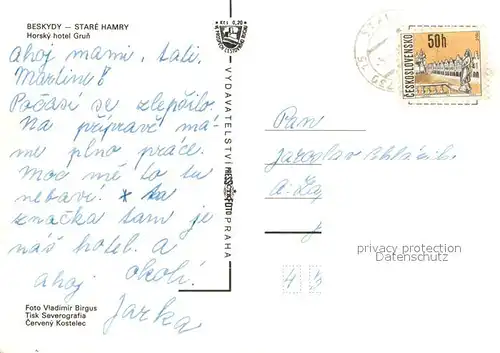 BESKYDY — STARÉ HAMRY
Horský hotel Gruň
ahoj mami, tati,
Martine!
Počasí se zlepšilo.
Na přípravě má-
me plno práce.
Moc mě to tu
nebaví. * ta
značka tam je
náš hotel. a
okolí.
ahoj
Jarka
Foto Vladimír Birgus
Tisk Severografia
Červený Kostelec
Kčs 0,20
VYDAVATELSTVÍ PRESSFOTO PRAHA
ČESKOSLOVENSKO
50h
Pan
Jaroslav
privacy protection
Datenschutz